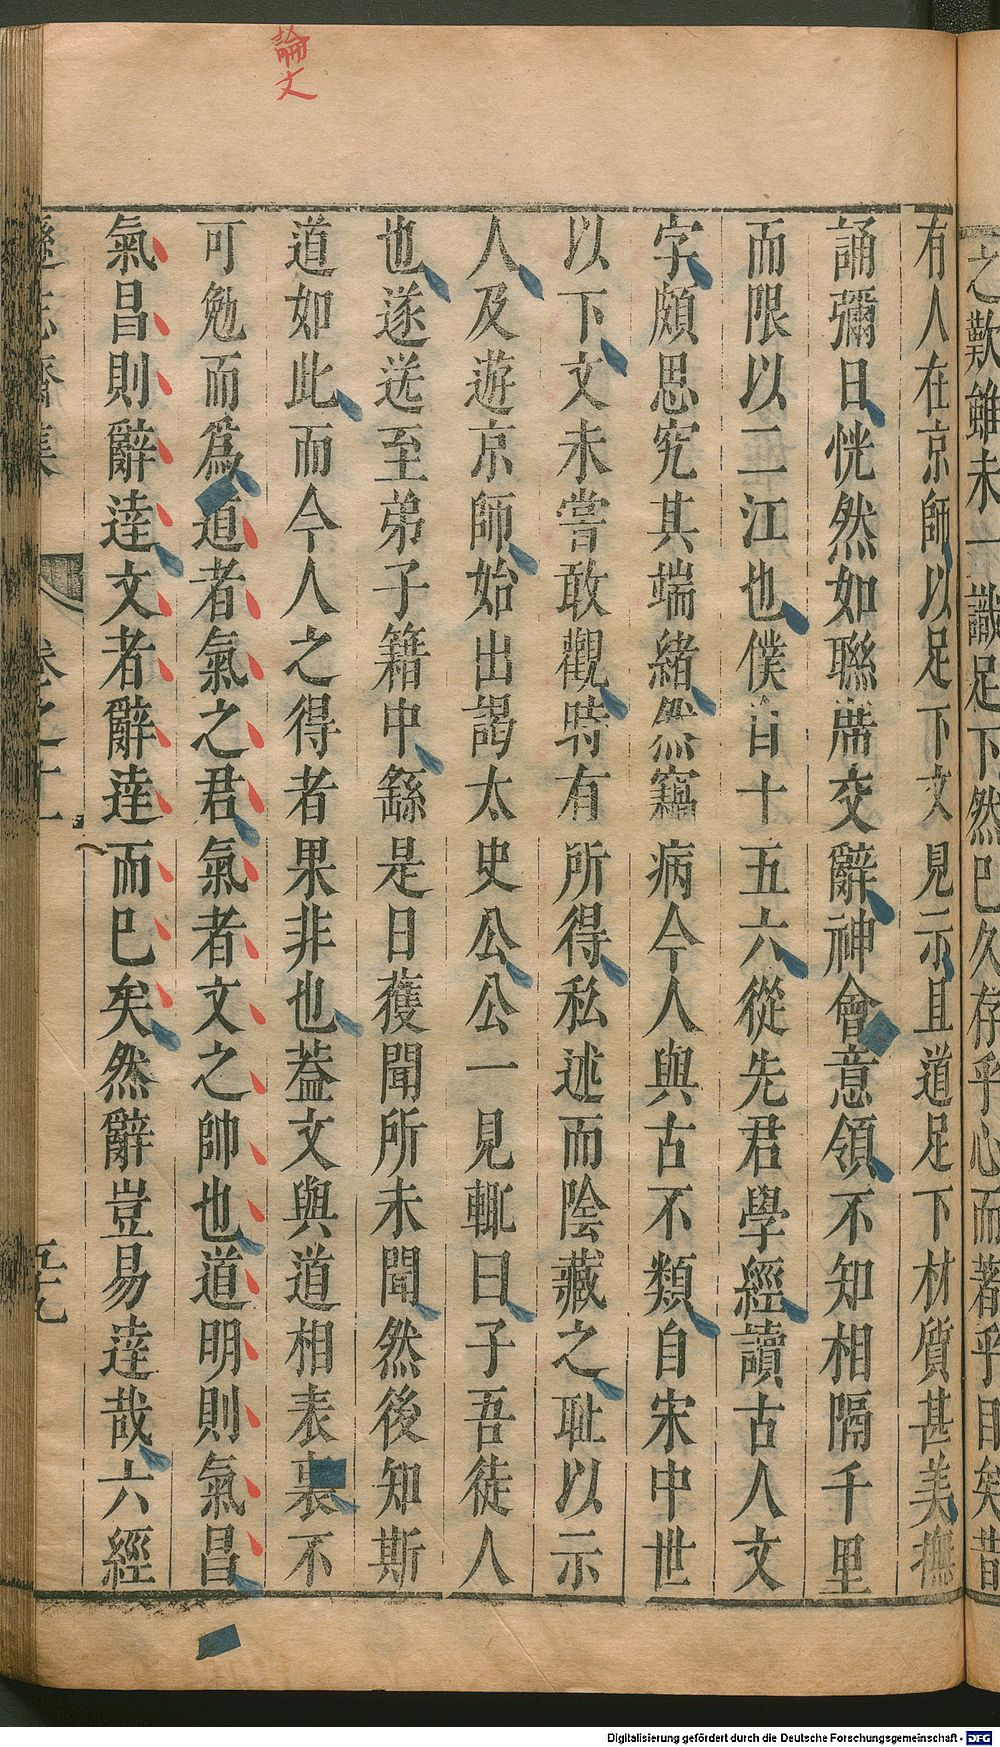 論文
之歎雖未一識足下然已久存乎心而著乎目矣昔
有人在京師以足下文見示且道足下材質甚美撫
誦彌日恍然如聯席交辭神會意領不知相隔千里
而限以二江也僕自十五六從先君學經讀古人文
字頗思究其端緒然竊病今人與古不類自宋中世
以下文未嘗敢觀時有所得私述而陰藏之耻以示
人及遊京師始出謁太史公公一見輒曰子吾徒人
也遂送至弟子籍中繇是日獲聞所未聞然後知斯
道如此而今人之得者果非也葢文與道相表裏不
可勉而爲道者氣之君氣者文之帥也道明則氣昌
氣昌則辭達文者辭達而已矣然辭豈易達哉六經
遜志齋集 卷之十一 五十九
Digitalisierung gefördert durch die Deutsche Forschungsgemeinschaft - DFG